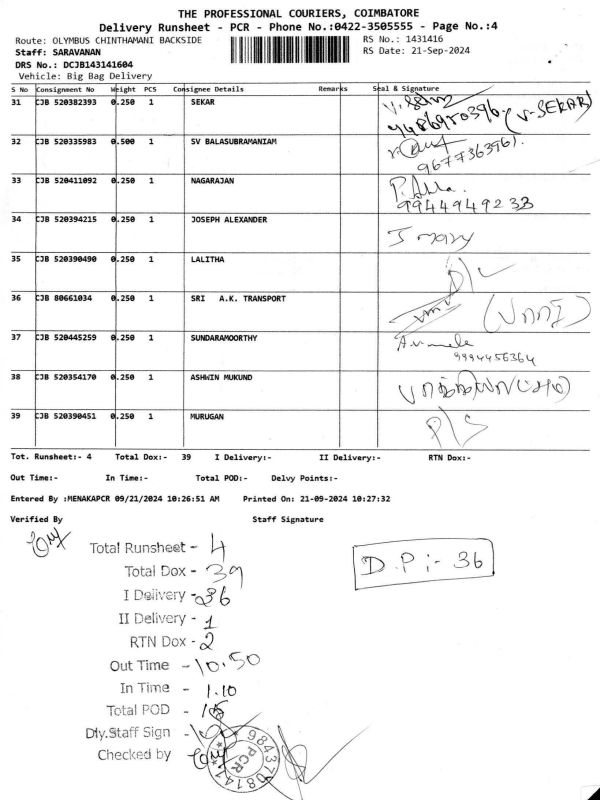 THE PROFESSIONAL COURIERS, COIMBATORE
Delivery Runsheet - PCR - Phone No.:0422-3505555 - Page No.:4
Route: OLYMBUS CHINTHAMANI BACKSIDE
RS No.: 1431416
Staff: SARAVANAN
RS Date: 21-Sep-2024
DRS No.: DCJB143141604
Vehicle: Big Bag Delivery
S No Consignment No Weight PCS Consignee Details Remarks Seal & Signature
31 CJB 520382393 0.250 1 SEKAR
9486970396. (V-SEKAR)
32 CJB 520335983 0.500 1 SV BALASUBRAMANIAM
9677363961.
33 CJB 520411092 0.250 1 NAGARAJAN
9944949233
34 CJB 520394215 0.250 1 JOSEPH ALEXANDER J mary
35 CJB 520390490 0.250 1 LALITHA D/L
36 CJB 80661034 0.250 1 SRI A.K. TRANSPORT
37 CJB 520445259 0.250 1 SUNDARAMOORTHY
9994456364
38 CJB 520354170 0.250 1 ASHWIN MUKUND
39 CJB 520390451 0.250 1 MURUGAN P/S
Tot. Runsheet:- 4 Total Dox:- 39 I Delivery:- II Delivery:- RTN Dox:-
Out Time:- In Time:- Total POD:- Delvy Points:-
Entered By :MENAKAPCR 09/21/2024 10:26:51 AM Printed On: 21-09-2024 10:27:32
Verified By Staff Signature
Total Runsheet - 4
D.P:- 36
Total Dox - 39
I Delivery - 36
II Delivery - 1
RTN Dox - 2
Out Time - 10.50
In Time - 1.10
Total POD -
Dly.Staff Sign -
Checked by
PCR